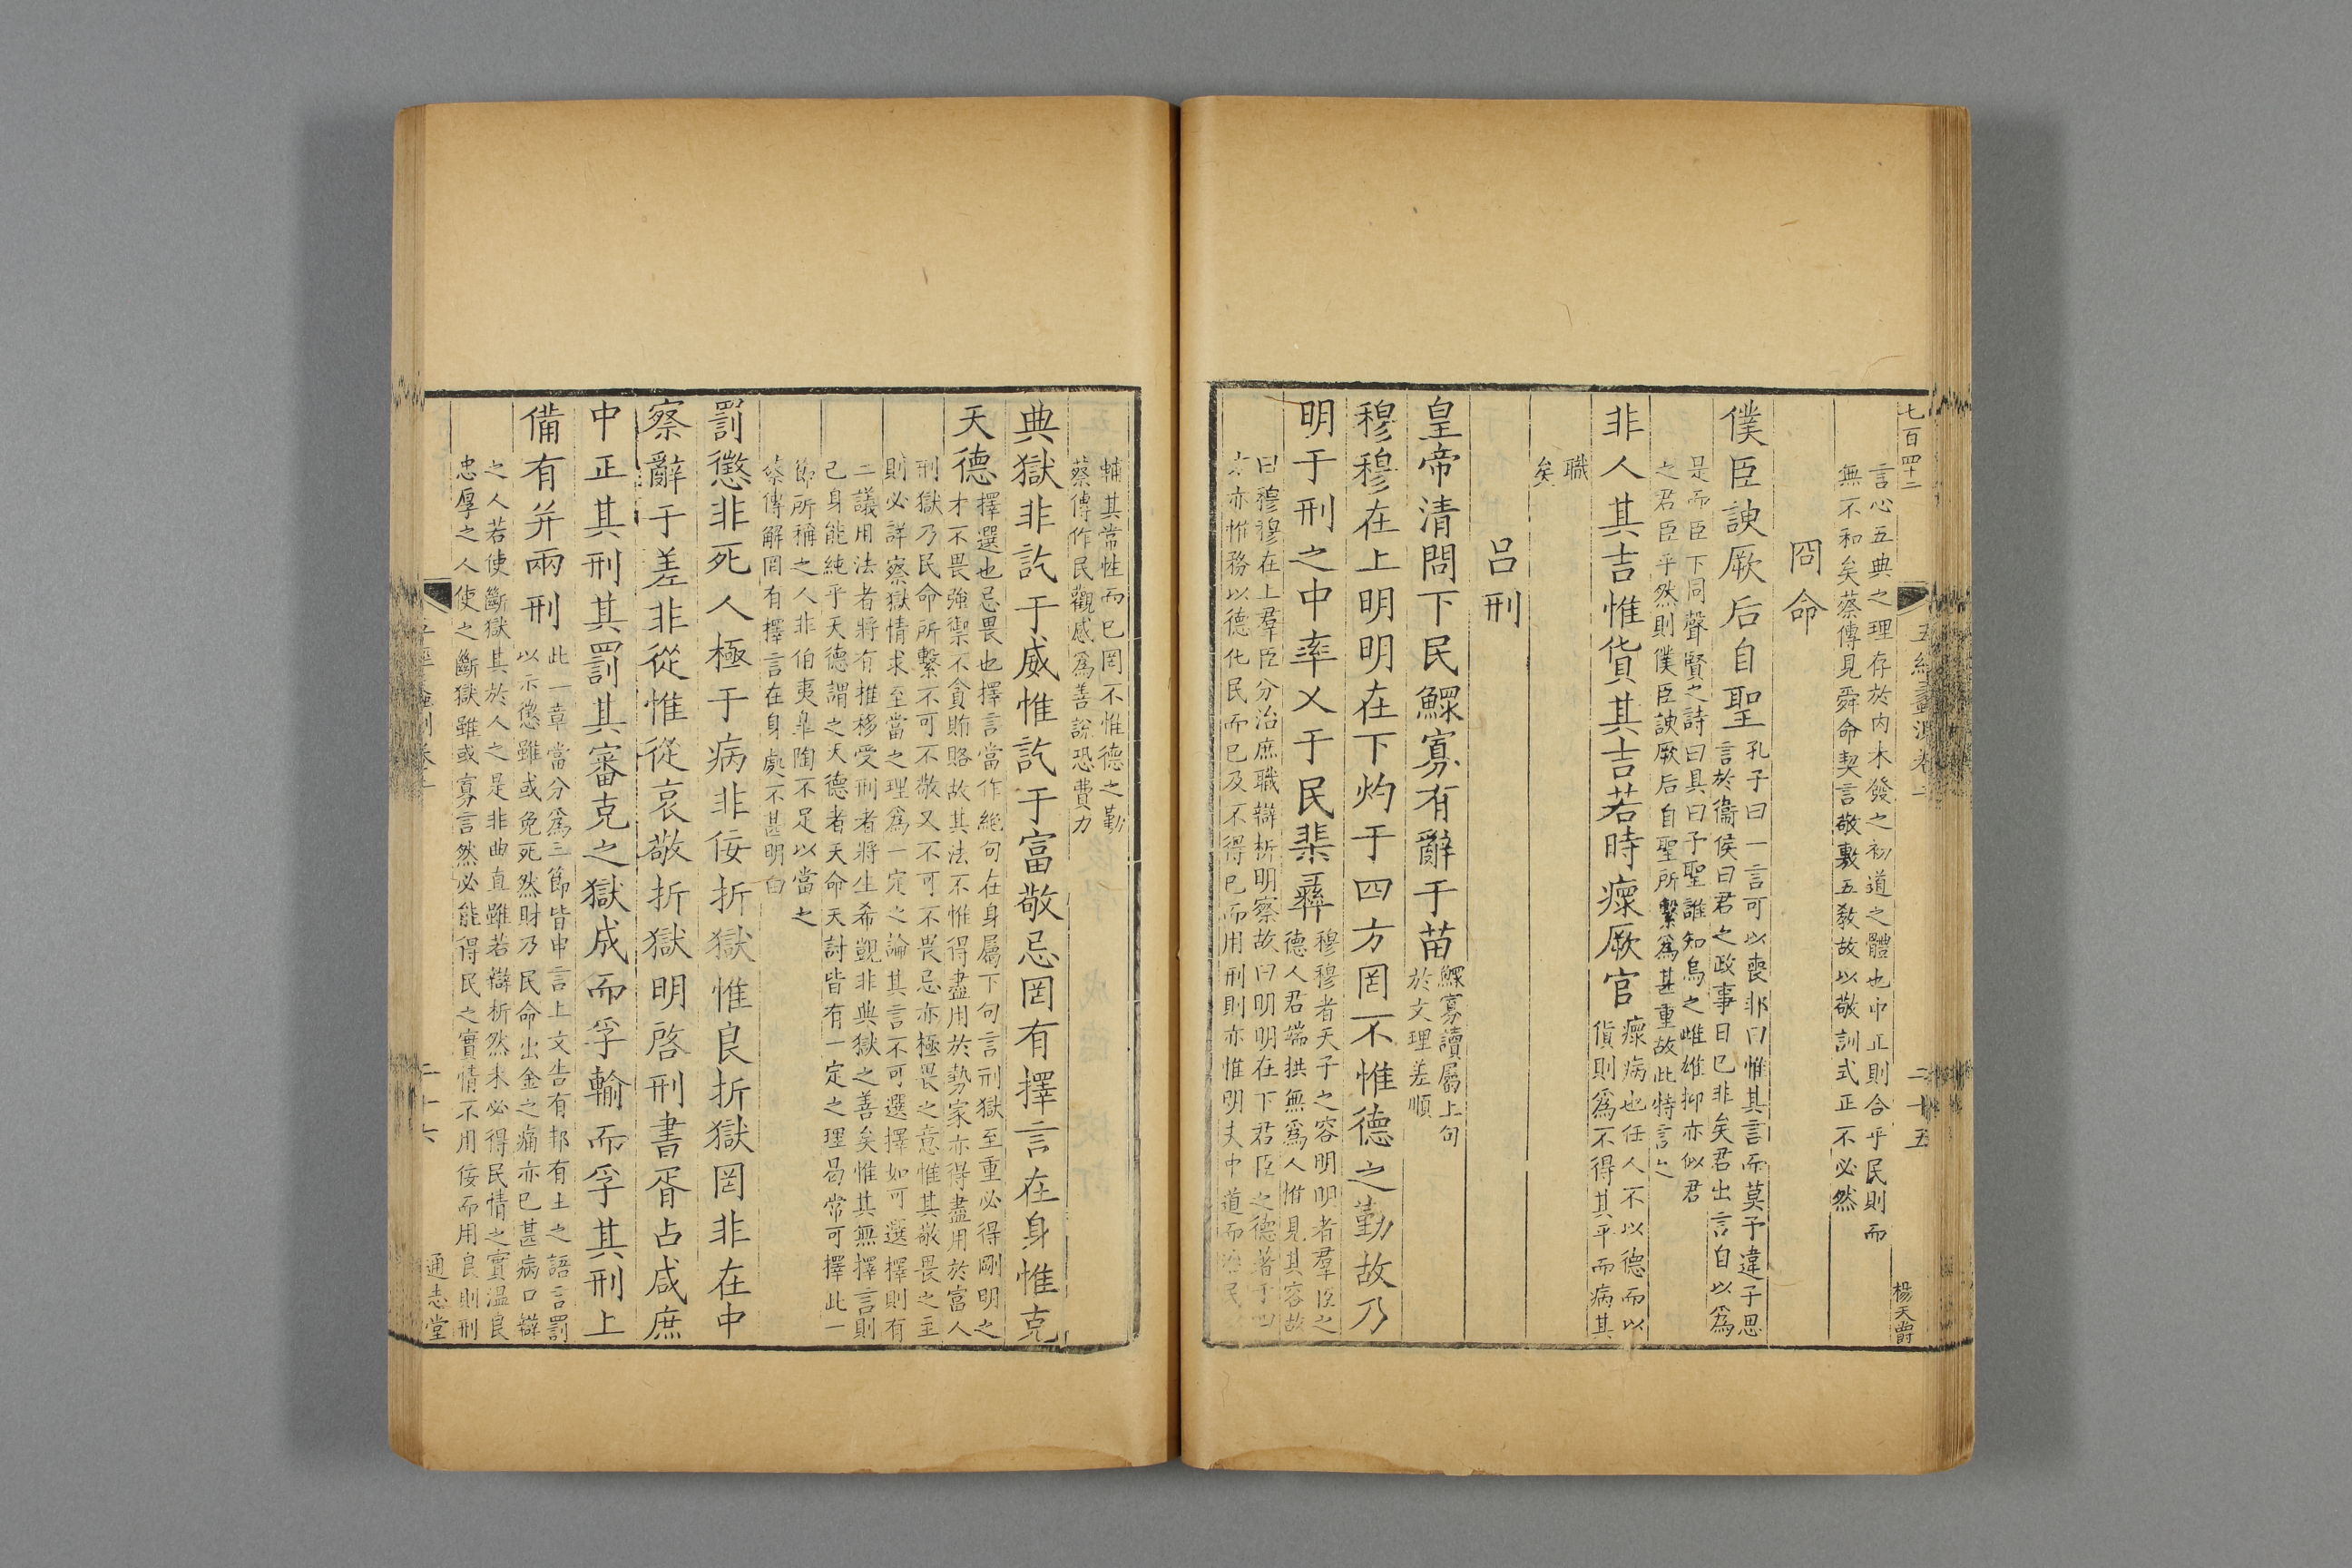 七百四十二
五經蠡測卷二
二十五
楊天爵
言心五典之理存於内未發之初道之體也中正則合乎民則而
無不和矣蔡傳見舜命契言敬敷五教故以敬訓式正不必然
冏命
僕臣諛厥后自聖
孔子曰一言可以喪邦曰惟其言而莫予違子思
言於衞侯曰君之政事日已非矣君出言自以爲
是而臣下同聲賢之詩曰具曰予聖誰知烏之雌雄抑亦似君
之君臣乎然則僕臣諛厥后自聖所繫爲甚重故此特言之
非人其吉惟貨其吉若時瘝厥官
瘝病也任人不以德而以
貨則爲不得其平而病其
職
矣
呂刑
皇帝清問下民鰥寡有辭于苗
鰥寡讀屬上句
於文理差順
穆穆在上明明在下灼于四方罔不惟德之勤故乃
明于刑之中率乂于民棐彝
穆穆者天子之容明明者羣臣之
德人君端拱無爲人惟見其容故
曰穆穆在上羣臣分治庶職辯析明察故曰明明在下君臣之德著于四
方亦惟務以德化民而已及不得已而用刑則亦惟明夫中道而治民
輔其常性而已罔不惟德之勤
蔡傳作民觀感爲善說恐費力
典獄非訖于威惟訖于富敬忌罔有擇言在身惟克
天德
擇選也忌畏也擇言當作絶句在身屬下句言刑獄至重必得剛明之
才不畏強禦不貪賄賂故其法不惟得盡用於勢家亦得盡用於富人
刑獄乃民命所繫不可不敬又不可不畏忌亦極畏之意惟其敬畏之主
則必詳察獄情求至當之理爲一定之論其言不可選擇如可選擇則有
二議用法者將有推移受刑者將生希覬非典獄之善矣惟其無擇言則
己身能純乎天德謂之天德者天命天討皆有一定之理曷常可擇此一
節所稱之人非伯夷臯陶不足以當之
蔡傳解罔有擇言在身處不甚明白
罰懲非死人極于病非佞折獄惟良折獄罔非在中
察辭于差非從惟從哀敬折獄明啓刑書胥占咸庶
中正其刑其罰其審克之獄成而孚輸而孚其刑上
備有并兩刑
此一章當分爲三節皆申言上文告有邦有土之語言罰
以示懲雖或免死然財乃民命出金之痛亦已甚病口辯
之人若使斷獄其於人之是非曲直雖若辯析然未必得民情之實温良
忠厚之人使之斷獄雖或寡言然必能得民之實情不用佞而用良則刑
通志堂